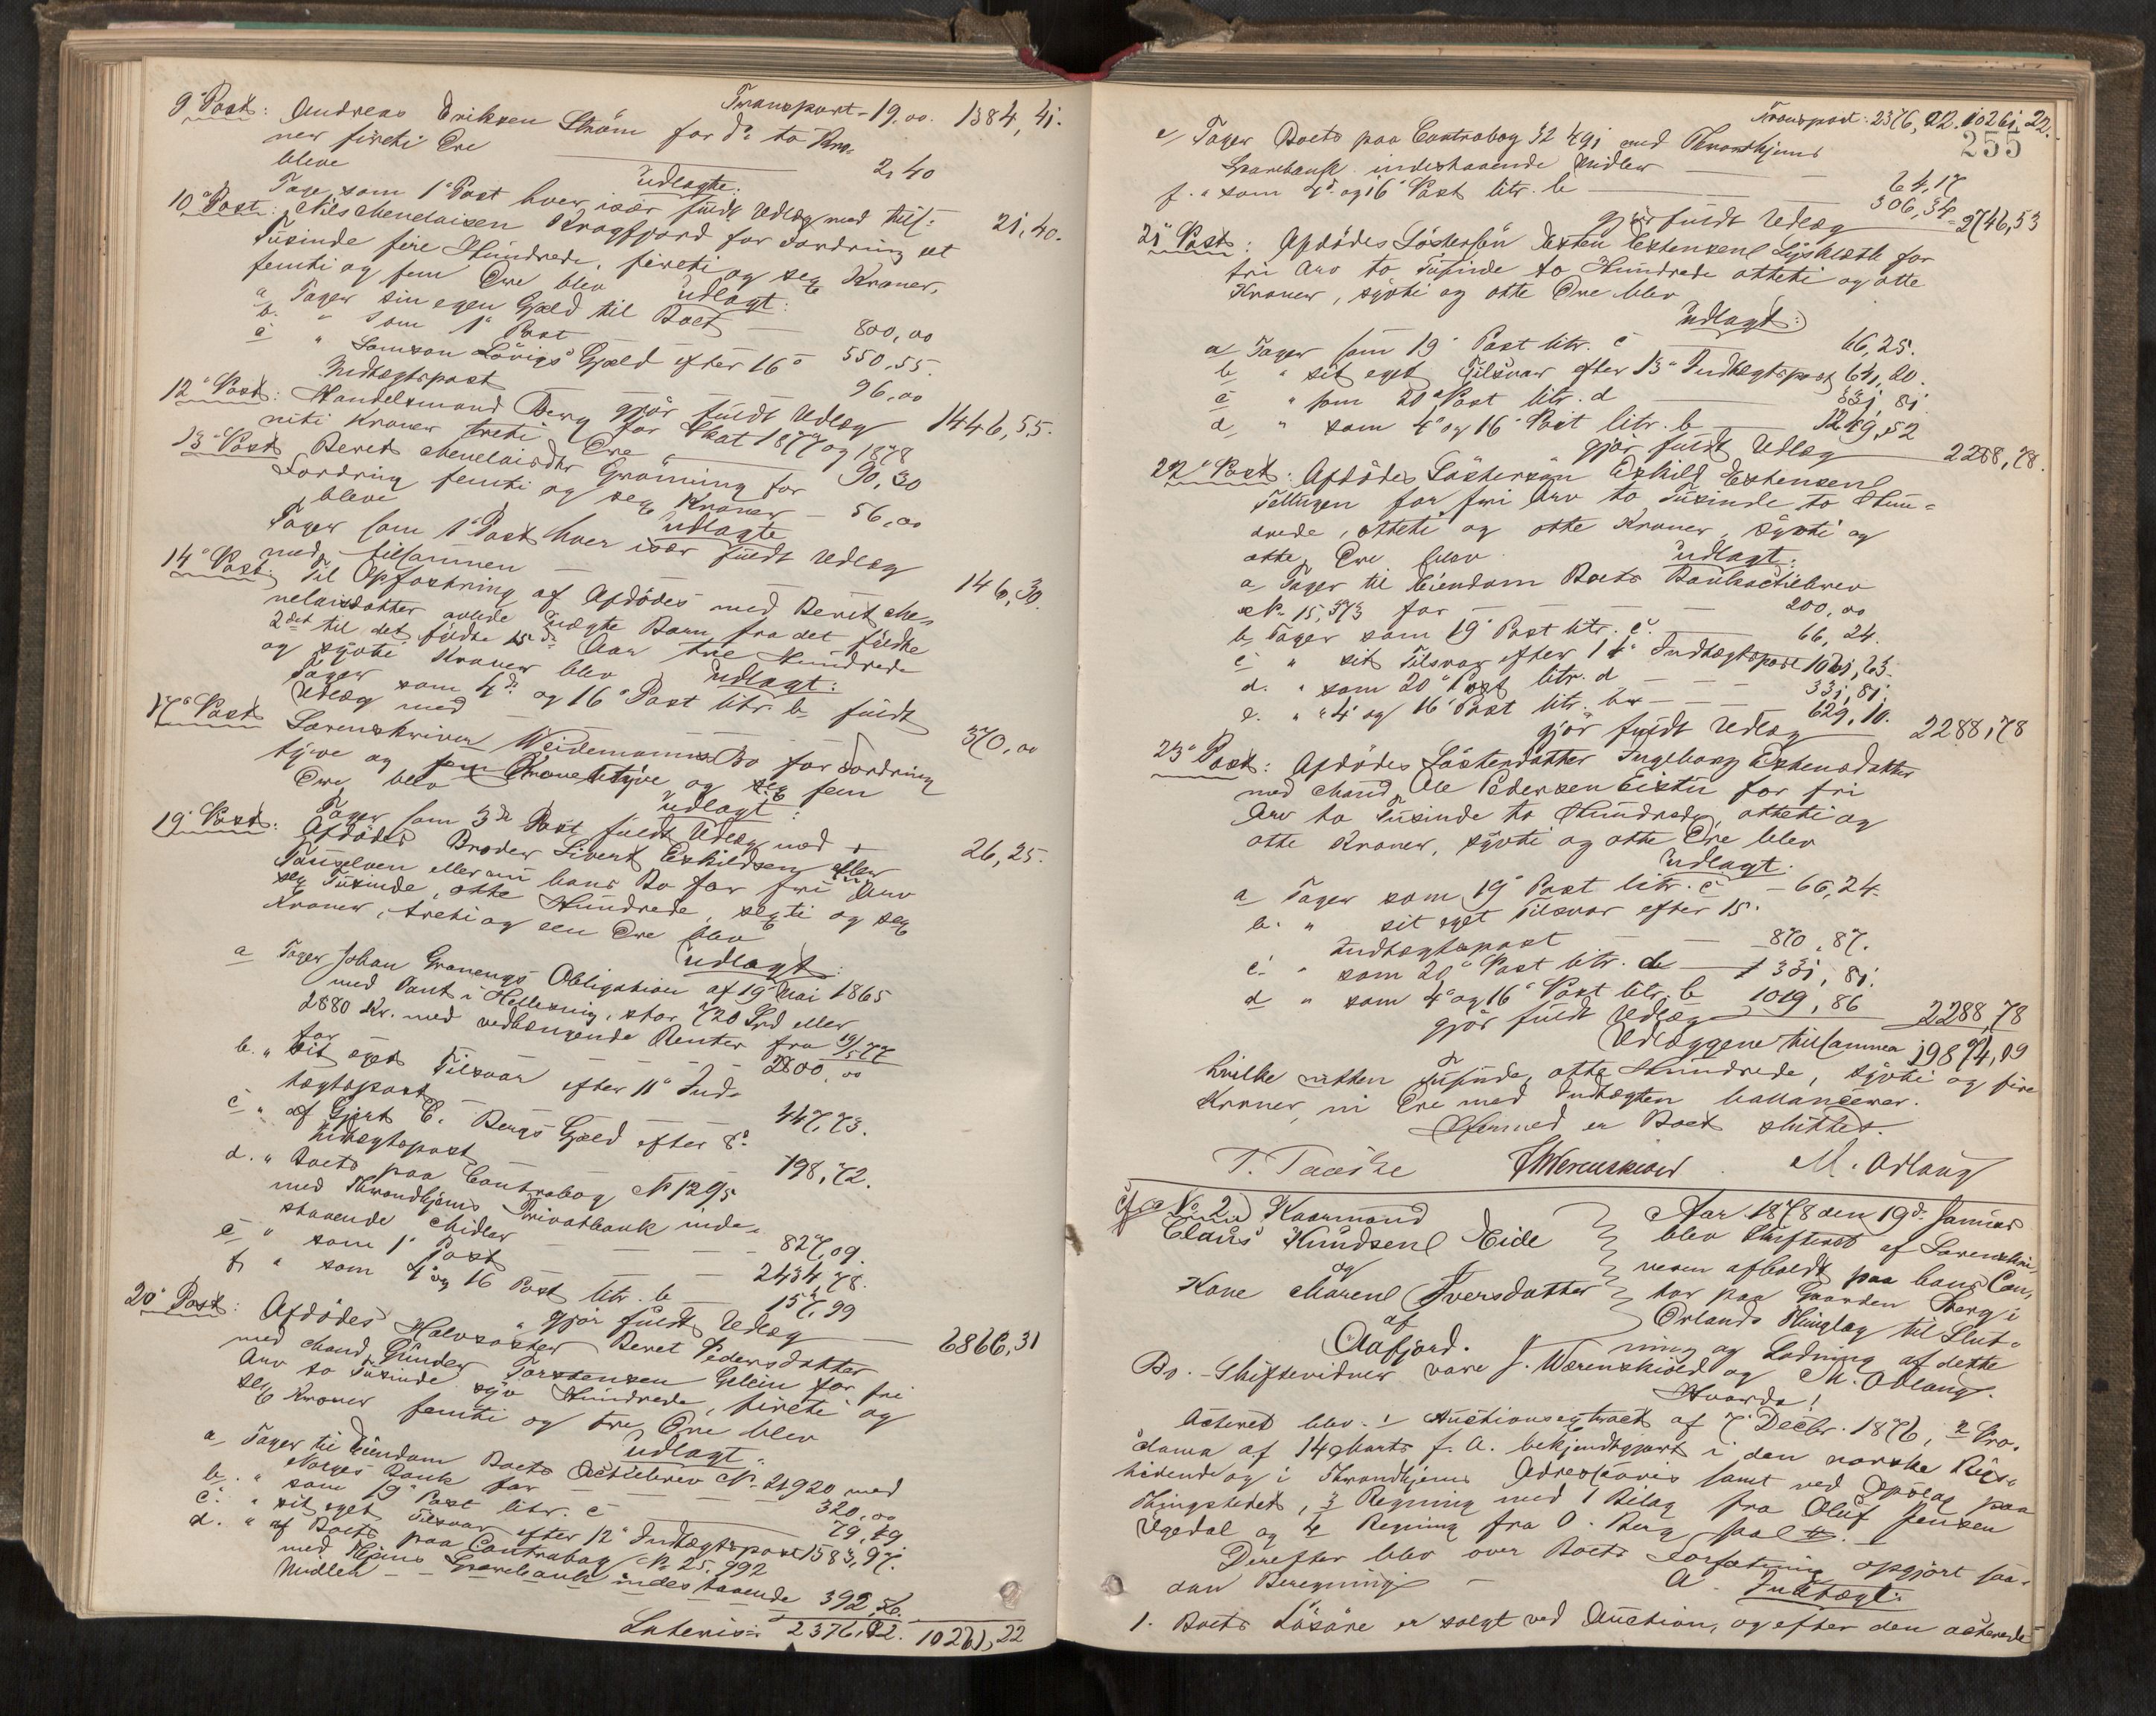 Transport - 19.00. 1384,41.
9de Post: Andreas Eriksen Ström for do to Kro-
ner fireti Øre 2,40
bleve udlagte:
Tage som 1ste Post hver især fuldt Udlæg med tils: 21,40.
10de Post: Nils Menelaisen Kragfjord for Fordring et
Tusinde fire Hundrede, fireti og sex Kroner,
femti og fem Øre blev udlagt:
a Tager sin egen Gjæld til Boet 800,00
b. " som 1ste Post 550,55.
c " Samson Lövigs Gjæld efter 16de
Indtægtspost 96,00
gjör fuldt Udlæg 1446,55.
12te Post: Handelsmand Berg for Skat 1877 og 1878
niti Kroner treti Øre 90,30
13de Post Beret Menelaisdtr Grönning for
Fordring femti og sex Kroner - 56,00
bleve udlagte
Tager som 1ste Post hver især fuldt Udlæg
med tilsammen 146,30.
14de Post: Til Opfostring af Afdödes med Berit Me-
nelaisdatter avlede uægte Barn fra det fyldte
2det til det fyldte 15de Aar tre Hundrede
og sytti Kroner blev udlagt:
Tager som 4de og 16de Post litr. b fuldt
Udlæg med 370,00
17de Post Sorenskriver Weidemanns Bo for Fordring
tyve og sex Kroner tyve og fem
Øre blev udlagt:
Tager som 3de Post fuldt Udlæg med 26,25.
19de Post: Afdödes Broder Sivert Eskildsen
eller om hans Bo for fri Arv
sex Tusinde, otte Hundrede, sexti og sex
Kroner, treti og een Øre blev
udlagt:
a Tager Johan Granengs Obligation af 19 Mai 1865
med Pant i , stor 720 Spd eller
2880 Kr. med vedhængende Renter fra 19/5 77
for 2800,00
b. " sit eget Tilsvar efter 11te Ind-
tægtspost 447,73.
c " af Gjert C. Bergs Gjæld efter 8de
Indtægtspost 198,72.
d. " Boets paa Contrabog No 1295
med Throndhjems Privatbank inde-
staaende Midler 827,09.
e " som 1ste Post 2434,78.
f. " som 4de og 16 Post litr. b 157,99
gjör fuldt Udlæg 6866,31
20de Post: Afdödes Halvsöster Beret Pedersdatter
med Mand Gunder Torstensen for fri
Arv to Tusinde syv Hundrede, fireti og
sex Kroner femti og tre Øre blev
udlagt.
a Tager til Eiendom Boets Actiebrev No 21920 med
Norges Bank for 320,00
b. " som 19de Post litr. c 79,49
c. " sit eget Tilsvar efter 12te Indtægtspost 1583,97.
d. " af Boets paa Contrabog No 25,992
med Thjems Sparebank indestaaende
Midler 392,56.
Lateris: 2376,02. 10261,22
Transport: 2376,02. 10261,22.
255
e/ Tager Boets paa Contrabog 32491 med Throndhjems
Sparebank indestaaende Midler 64,17
f. " som 4de og 16de Post litr. b 306,34
gjör fuldt Udlæg 2746,53
21de Post: Afdödes Söstersön Esten Estensen for
fri Arv to Tusinde to Hundrede otteti og otte
Kroner, sytti og otte Øre blev
udlagt:
a Tager som 19de Post litr. c 66,25.
b " sit eget Tilsvar efter 13de Indtægtspost 641,20.
c " som 20de Post litr. d 331,81
d " som 4de og 16de Post litr. b 1249,52
gjör fuldt Udlæg 2288,78.
22de Post: Afdödes Söstersön Eskild Estensen
for fri Arv to Tusinde to Hun-
drede, otteti og otte Kroner, sytti og
otte Øre blev udlagt:
a Tager til Eiendom Boets Bankactiebrev
No 15,373 for 200,00
b. Tager som 19de Post litr. c. 66,24.
c " sit Tilsvar efter 14de Indtægtspost 1061,63.
d. " som 20de Post litr. d 331,81.
e. " " 4de og 16de Post litr. b 629,10.
gjör fuldt Udlæg 2288,78
23de Post: Afdödes Sösterdatter Ingeborg Estensdatter
med Mand Ole Pedersen for fri
Arv to Tusinde to Hundrede, otteti og
otte Kroner, sytti og otte Øre blev
udlagt:
a Tager som 19de Post litr. c - 66,24.
b. " sit eget Tilsvar efter 15.
Indtægtspost 870,87.
c. " som 20de Post litr. d 331,81.
d " som 4de og 16de Post litr. b 1019,86
gjör fuldt Udlæg 2288,78
Udlæggene tilsammen 19874,09
hvilke nitten Tusinde, otte Hundrede, sytti og fire
Kroner, ni Øre med Indtægten ballancerer.
Hermed er Boet sluttet.
T. Taaske J Werenskiold M. Odlaug
No 2. Kaarmand
Claus Knudsen Eide
og
Kone Maren Iversdatter
af
Aafjord.
Aar 1878 den 19de Januar
blev Skifteret af Sorenskri-
veren afholdt paa hans Con-
tor paa Gaarden Berg i
Ørlands Thinglag til Slut-
ning og Lodning af dette
Bo. - Skiftevidner vare J. Werenskiold og M. Odlaug.
Hvorda!
Acteret blev: 1 Auctionsextract af 7 Decbr. 1876, 2 Pro-
clama af 14 Marts f. A. bekjendtgjort i den norske Rigs-
tidende og i Throndhjems Adresseavis samt ved Opslag paa
Thingstedet, 3 Regning med 1 Bilag fra Oluf Jensen
Ugedal og 4 Regning fra O. Berg
Derefter blev over Boets Forfatning opgjört saa-
dan Beregning:
A. Indtægt:
1. Boets Lösöre er solgt ved Auction, og efter den acterede